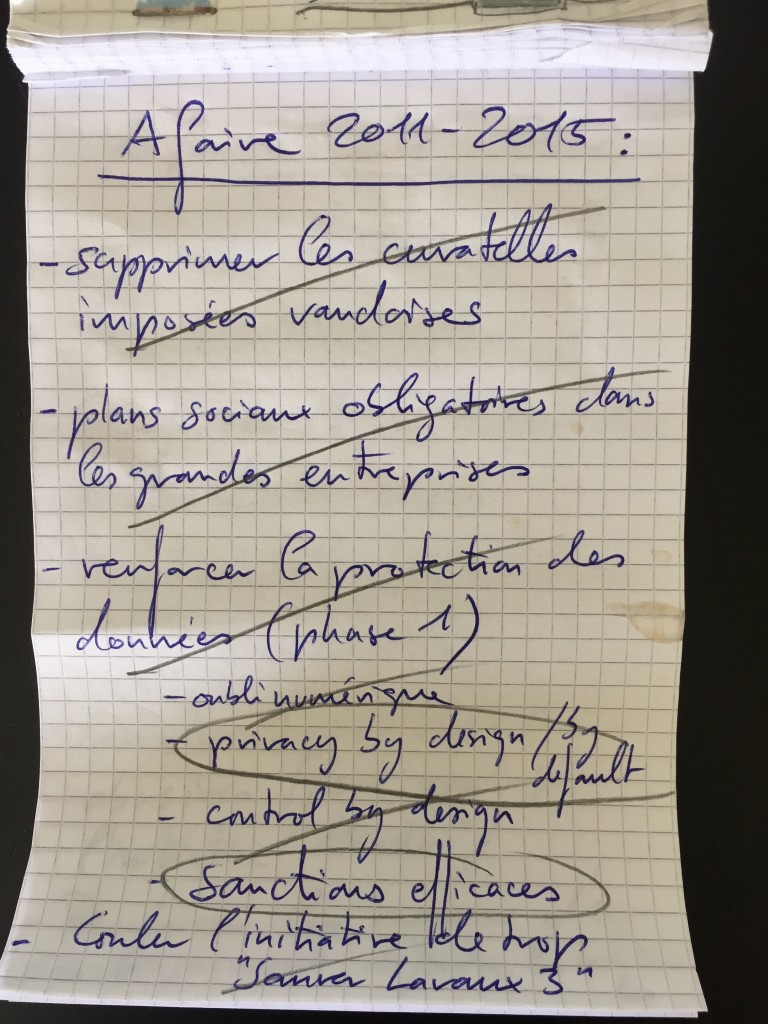 A faire 2011-2015:
- supprimer les curatelles
imposées vaudoises
- plans sociaux obligatoires dans
les grandes entreprises
- renforcer la protection des
données (phase 1)
- oubli numérique
- privacy by design / by
default
- control by design
- Sanctions efficaces
- Couler l'initiative de trop
"Sauver Lavaux 3"